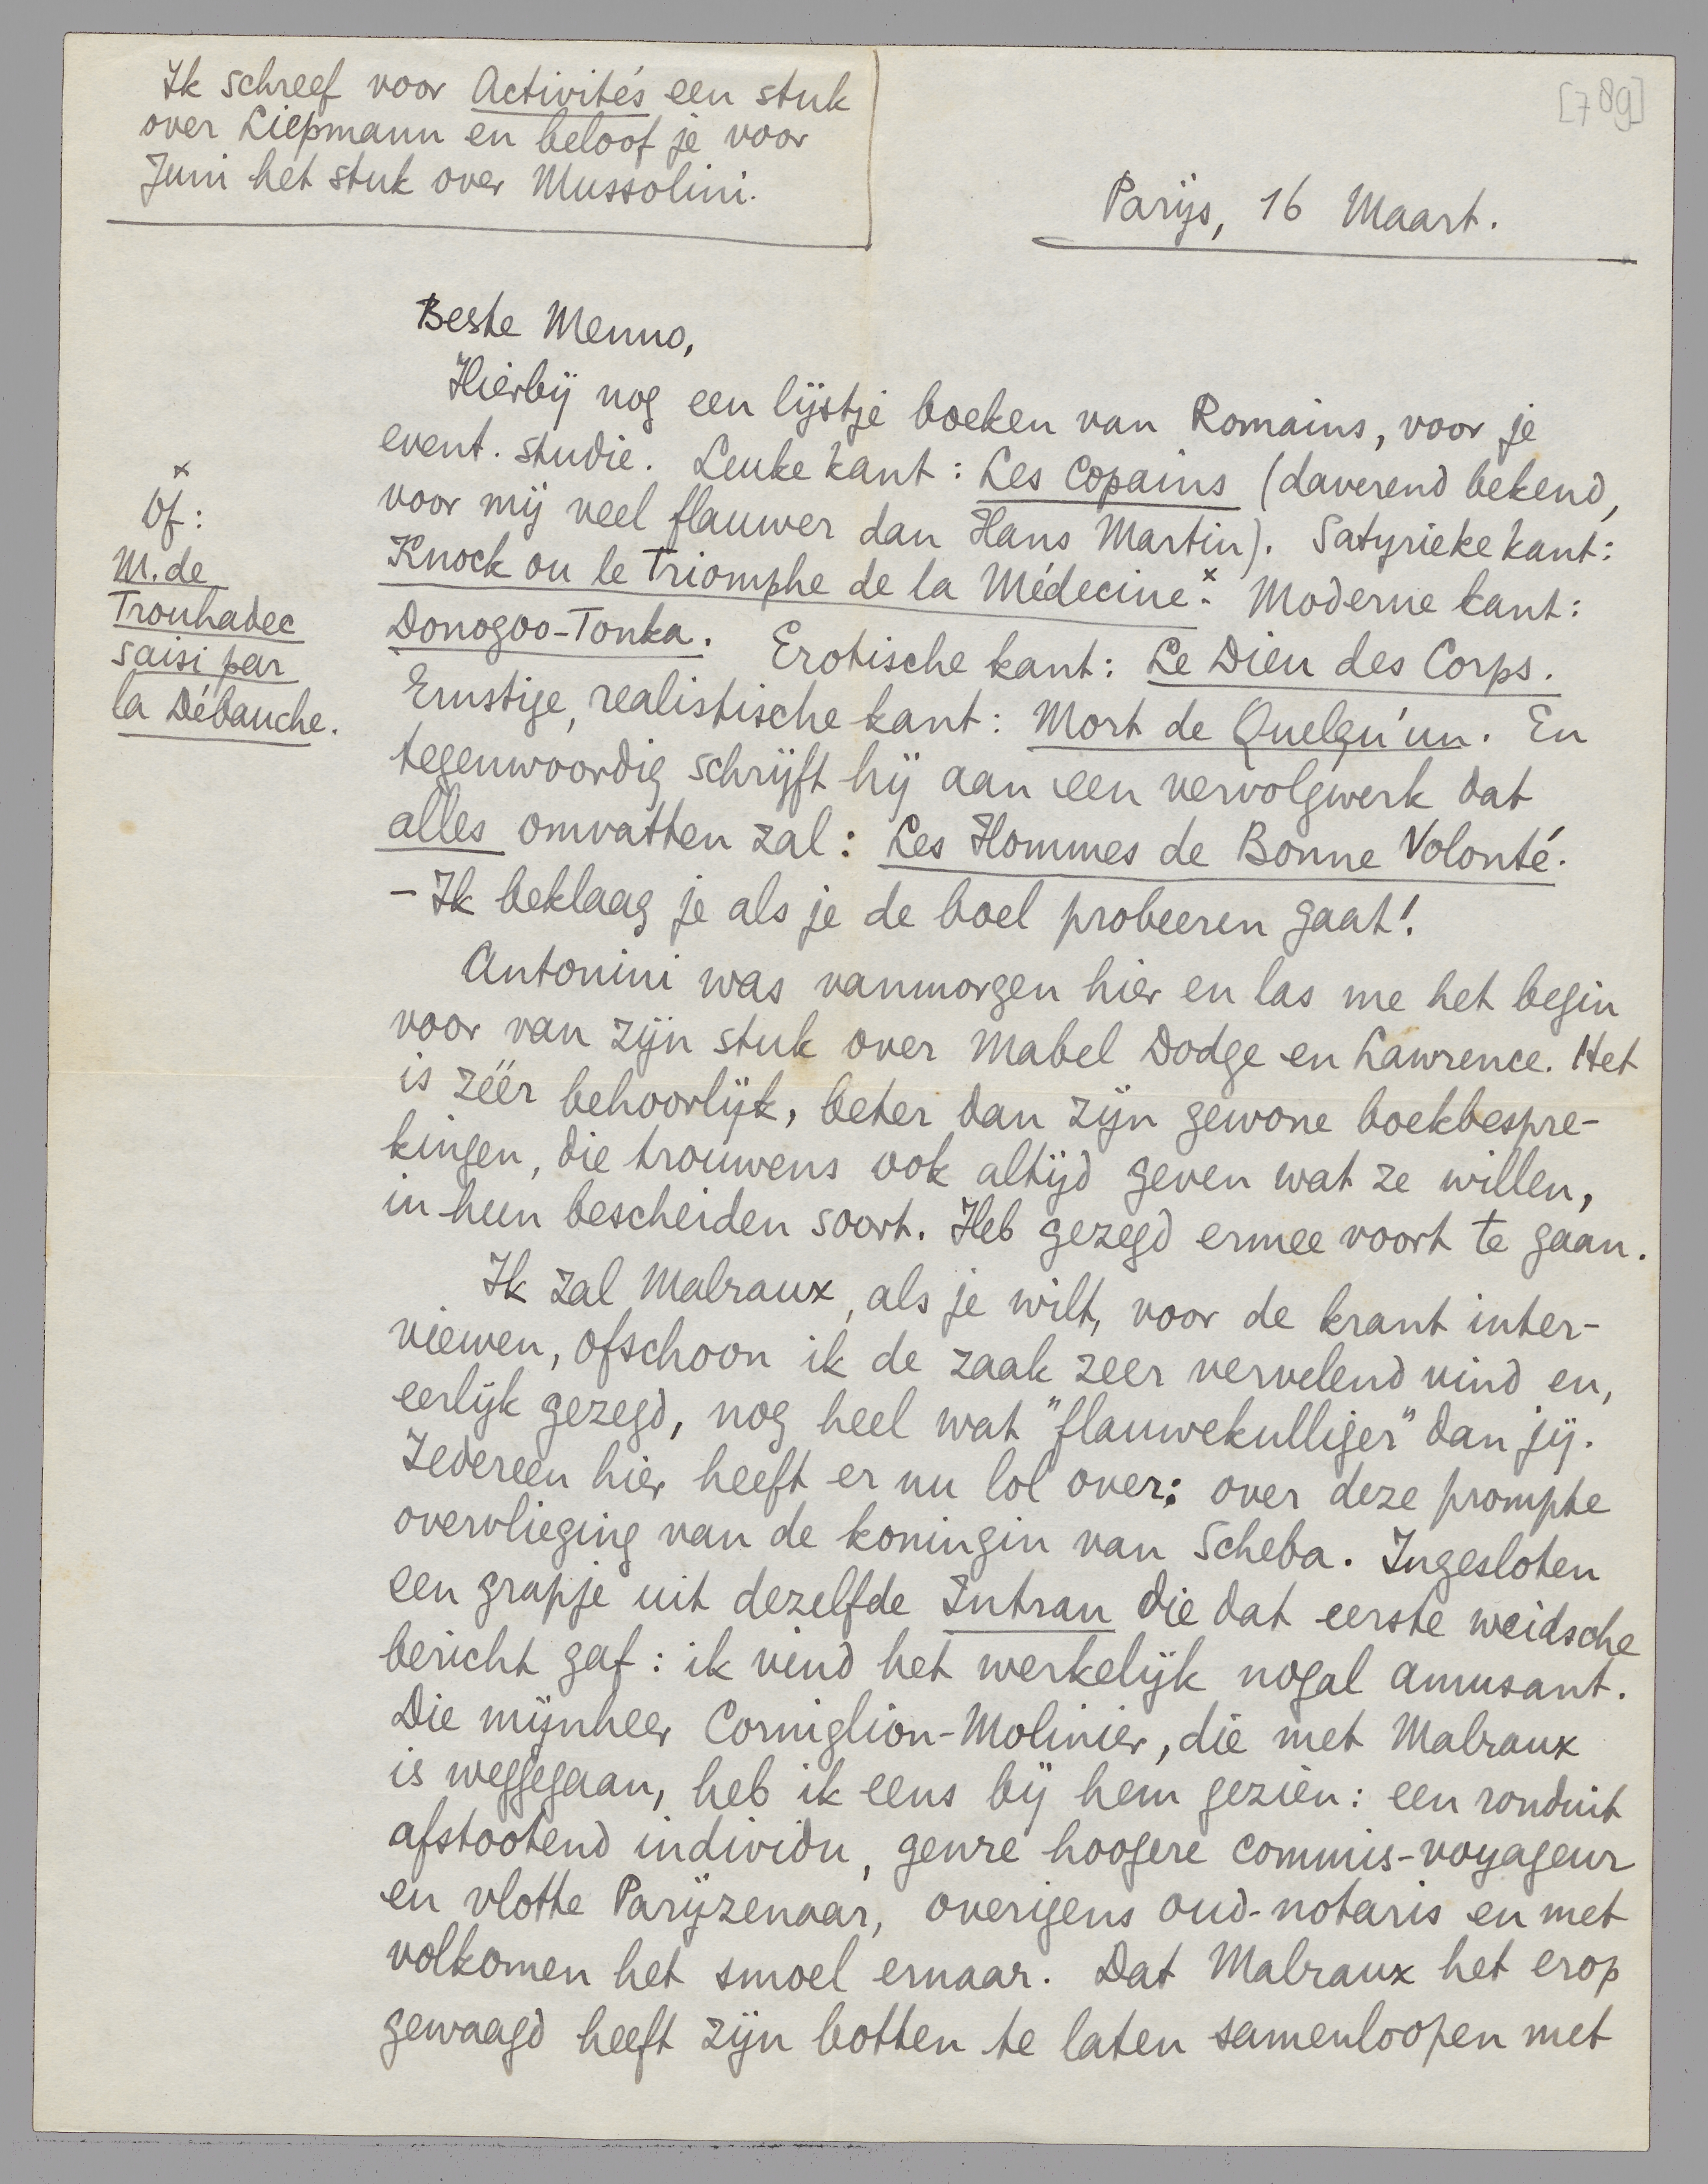 Ik schreef voor Activités een stuk
over Liepmann en beloof je voor
Juni het stuk over Mussolini.
[789]
Parijs, 16 Maart.
Beste Menno,
Hierbij nog een lijstje boeken van Romains, voor je
event. studie. Leuke kant: Les Copains (daverend bekend,
voor mij veel flauwer dan Hans Martin). Satyrieke kant:
Knock ou le Triomphe de la Médecine.x Moderne kant:
Donogoo-Tonka. Erotische kant: Le Dieu des Corps.
Ernstige, realistische kant: Mort de Quelqu'un. En
tegenwoordig schrijft hij aan een vervolgwerk dat
alles omvatten zal: Les Hommes de Bonne Volonté.
– Ik beklaag je als je de boel probeeren gaat!
x
Of:
M. de
Trouhadec
saisi par
la Débauche.
Antonini was vanmorgen hier en las me het begin
voor van zijn stuk over Mabel Dodge en Lawrence. Het
is zéér behoorlijk, beter dan zijn gewone boekbespre-
kingen, die trouwens ook altijd geven wat ze willen,
in hun bescheiden soort. Heb gezegd ermee voort te gaan.
Ik zal Malraux, als je wilt, voor de krant inter-
viewen, ofschoon ik de zaak zeer vervelend vind en,
eerlijk gezegd, nog heel wat "flauwekulliger" dan jij.
Iedereen hier heeft er nu lol over: over deze prompte
overvlieging van de koningin van Scheba. Ingesloten
een grapje uit dezelfde Intran die dat eerste weidsche
bericht gaf: ik vind het werkelijk nogal amusant.
Die mijnheer Corniglion-Molinier, die met Malraux
is weggegaan, heb ik eens bij hem gezien: een ronduit
afstootend individu, genre hoogere commis-voyageur
en vlotte Parijzenaar, overigens oud-notaris en met
volkomen het smoel ernaar. Dat Malraux het erop
gewaagd heeft zijn botten te laten samenloopen met